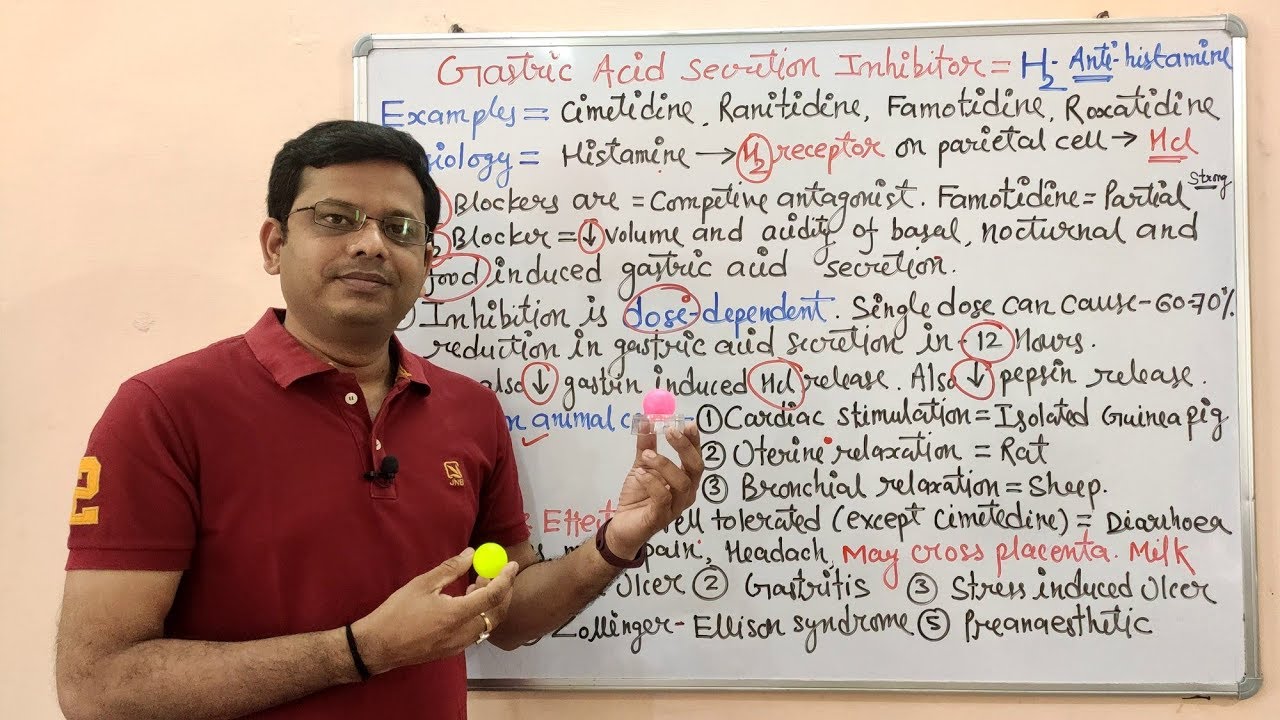 Gastric Acid secretion Inhibitor = H2-Anti-histamine
Examples = Cimetidine, Ranitidine, Famotidine, Roxatidine
iology = Histamine → H2 receptor on parietal cell → Hcl
Blockers are = Competive antagonist. Famotidine = Partial Strong
Blocker = ↓ volume and acidity of basal, nocturnal and
food induced gastric acid secretion.
Inhibition is dose-dependent. Single dose can cause-60-70%
reduction in gastric acid secretion in 12 Hours.
also ↓ gastrin induced Hcl release. Also ↓ pepsin release.
animal ① Cardiac stimulation = Isolated Guinea pig
② Uterine relaxation = Rat
③ Bronchial relaxation = Sheep.
Effect tolerated (except Cimetedine) = Diarrhoea
pain, Headach, May cross placenta. Milk
Ulcer ② Gastritis ③ Stress induced Ulcer
Zollinger-Ellison syndrome ⑤ Preanaesthetic
2
JNB